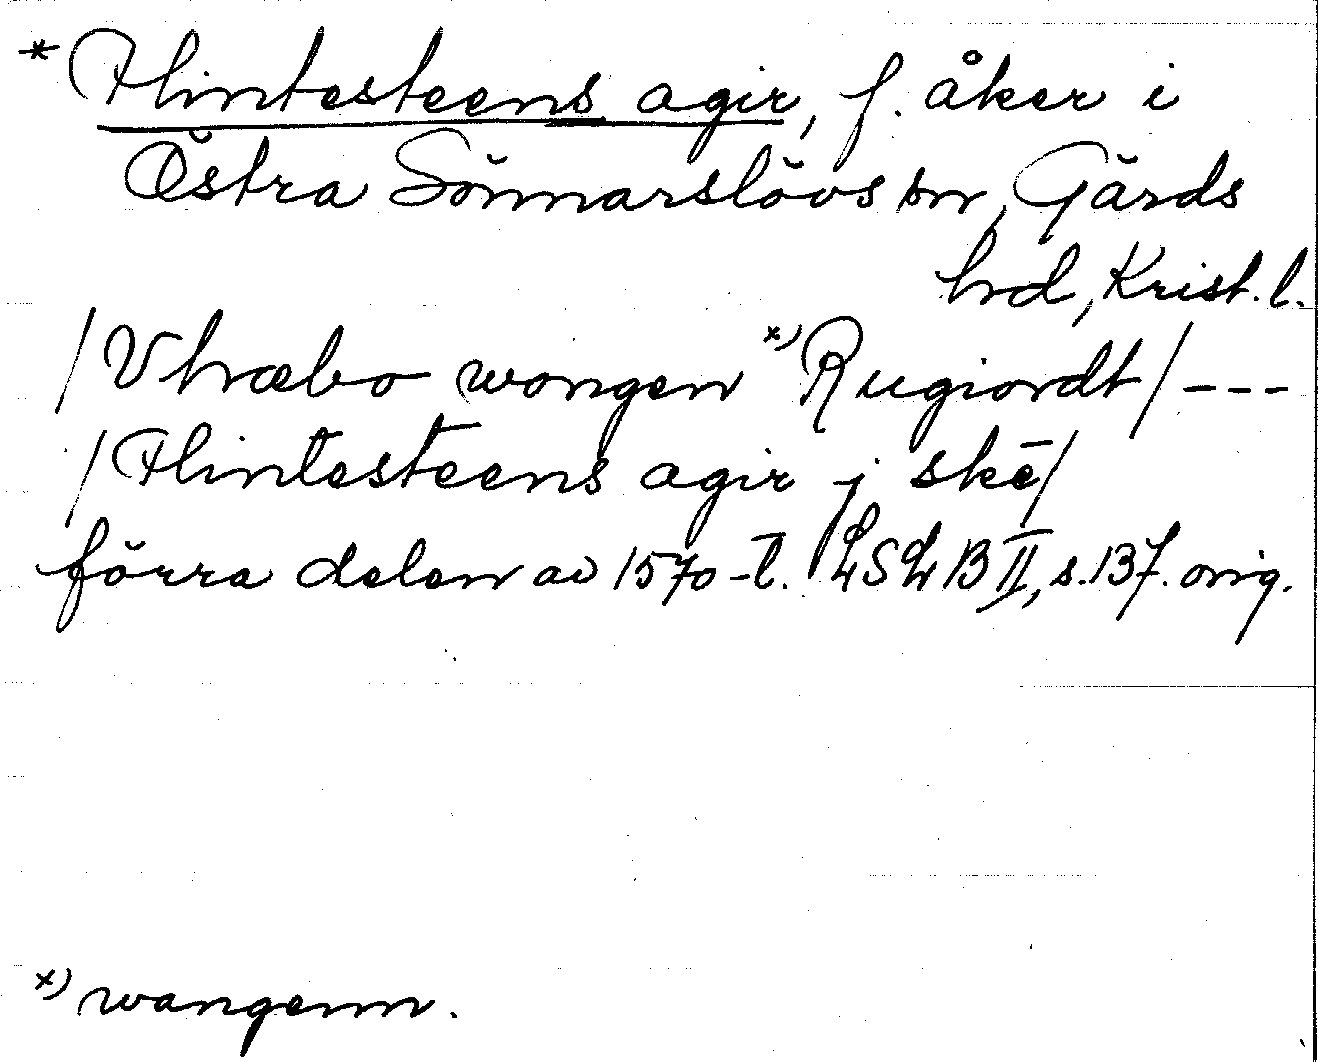 * Flintesteens agir, f. åker i
Östra Sönnarslövs sn, Gärds
hd, Krist. l.
/Vhræbo wongen x) Rugiordt/ ---
/Flintesteens agir j skē/
förra delen av 1570-t. LSLB II, s. 137. orig.
x) wangenn.